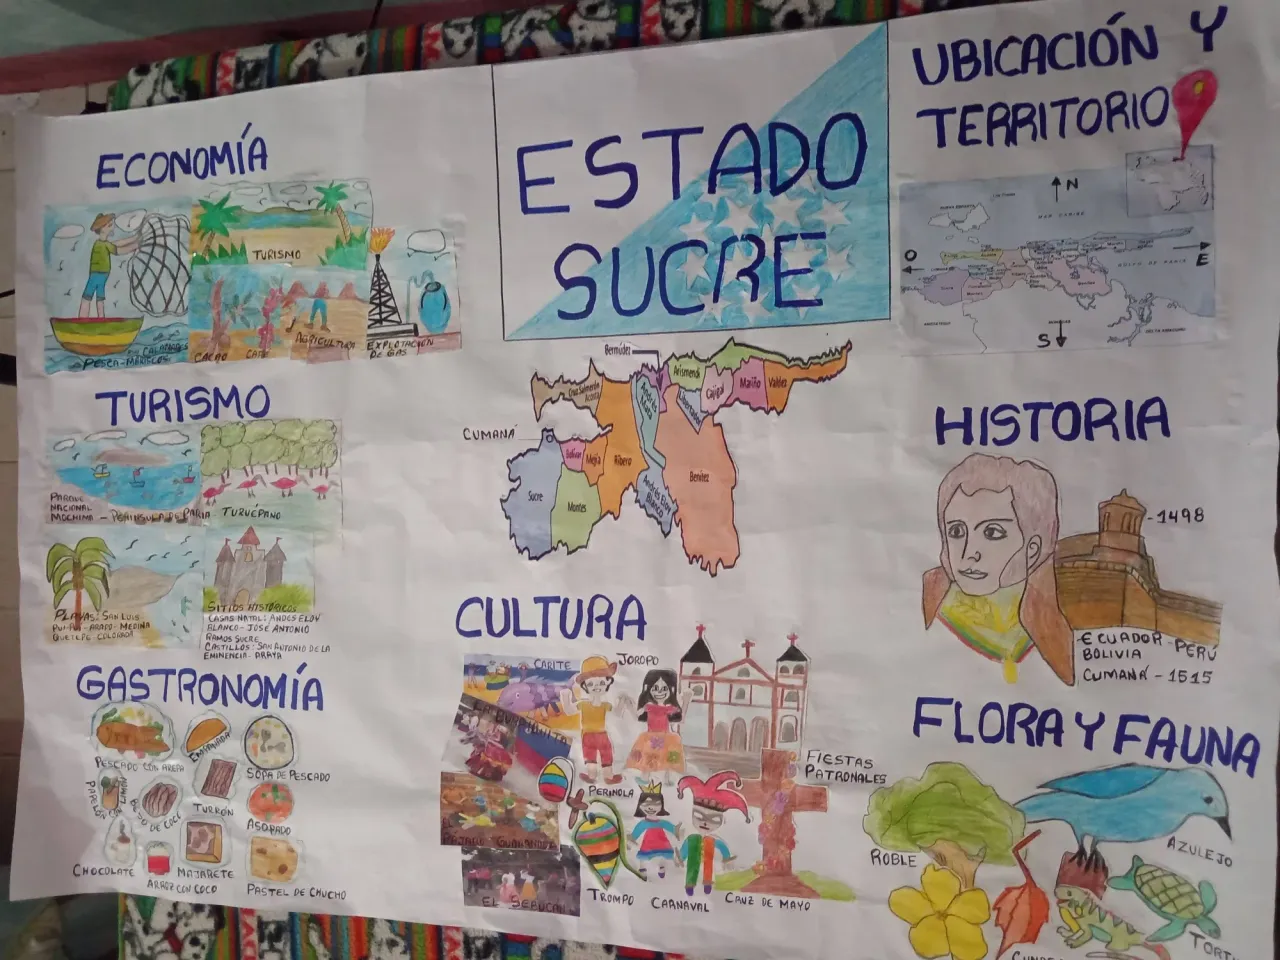 ESTADO
SUCRE
ECONOMÍA
TURISMO
PESCA-MARISCOS
CACAO
CAFÉ
AGRICULTURA
EXPLOTACIÓN
DE GAS
TURISMO
PARQUE
NACIONAL
MOCHIMA - PENINSULA DE PARIA
TURUÉPANO
PLAYAS: SAN LUIS
PUI-PUI-ARAPO-MEDINA
QUETEPE COLORADA
SITIOS HISTÓRICOS
CASAS NATAL: ANDES ELOY
BLANCO - JOSE ANTONIO
RAMOS SUCRE
CASTILLOS: SAN ANTONIO DE LA
EMINENCIA - ARAYA
GASTRONOMÍA
PESCADO CON AREPA
EMPANADA
SOPA DE PESCADO
DE COCO
TURRÓN
ASOPADO
CHOCOLATE
ARROZ CON COCO
MAJARETE
PASTEL DE CHUCHO
Bermúdez
Cruz Salmerón
Acosta
Andrés
Mata
Arismendi
Libertador
Cajigal
Mariño
Valdez
CUMANÁ
Bolívar
Mejía
Ribero
Benítez
Sucre
Montes
Andrés Eloy
Blanco
CULTURA
CARITE
JOROPO
PERINOLA
FIESTAS
PATRONALES
EL SEBUCAN
TROMPO
CARNAVAL
CRUZ DE MAYO
UBICACIÓN Y
TERRITORIO
N
MAR CARIBE
O
E
S
HISTORIA
-1498
ECUADOR-PERÚ
BOLIVIA
CUMANÁ - 1515
FLORA Y FAUNA
ROBLE
AZULEJO